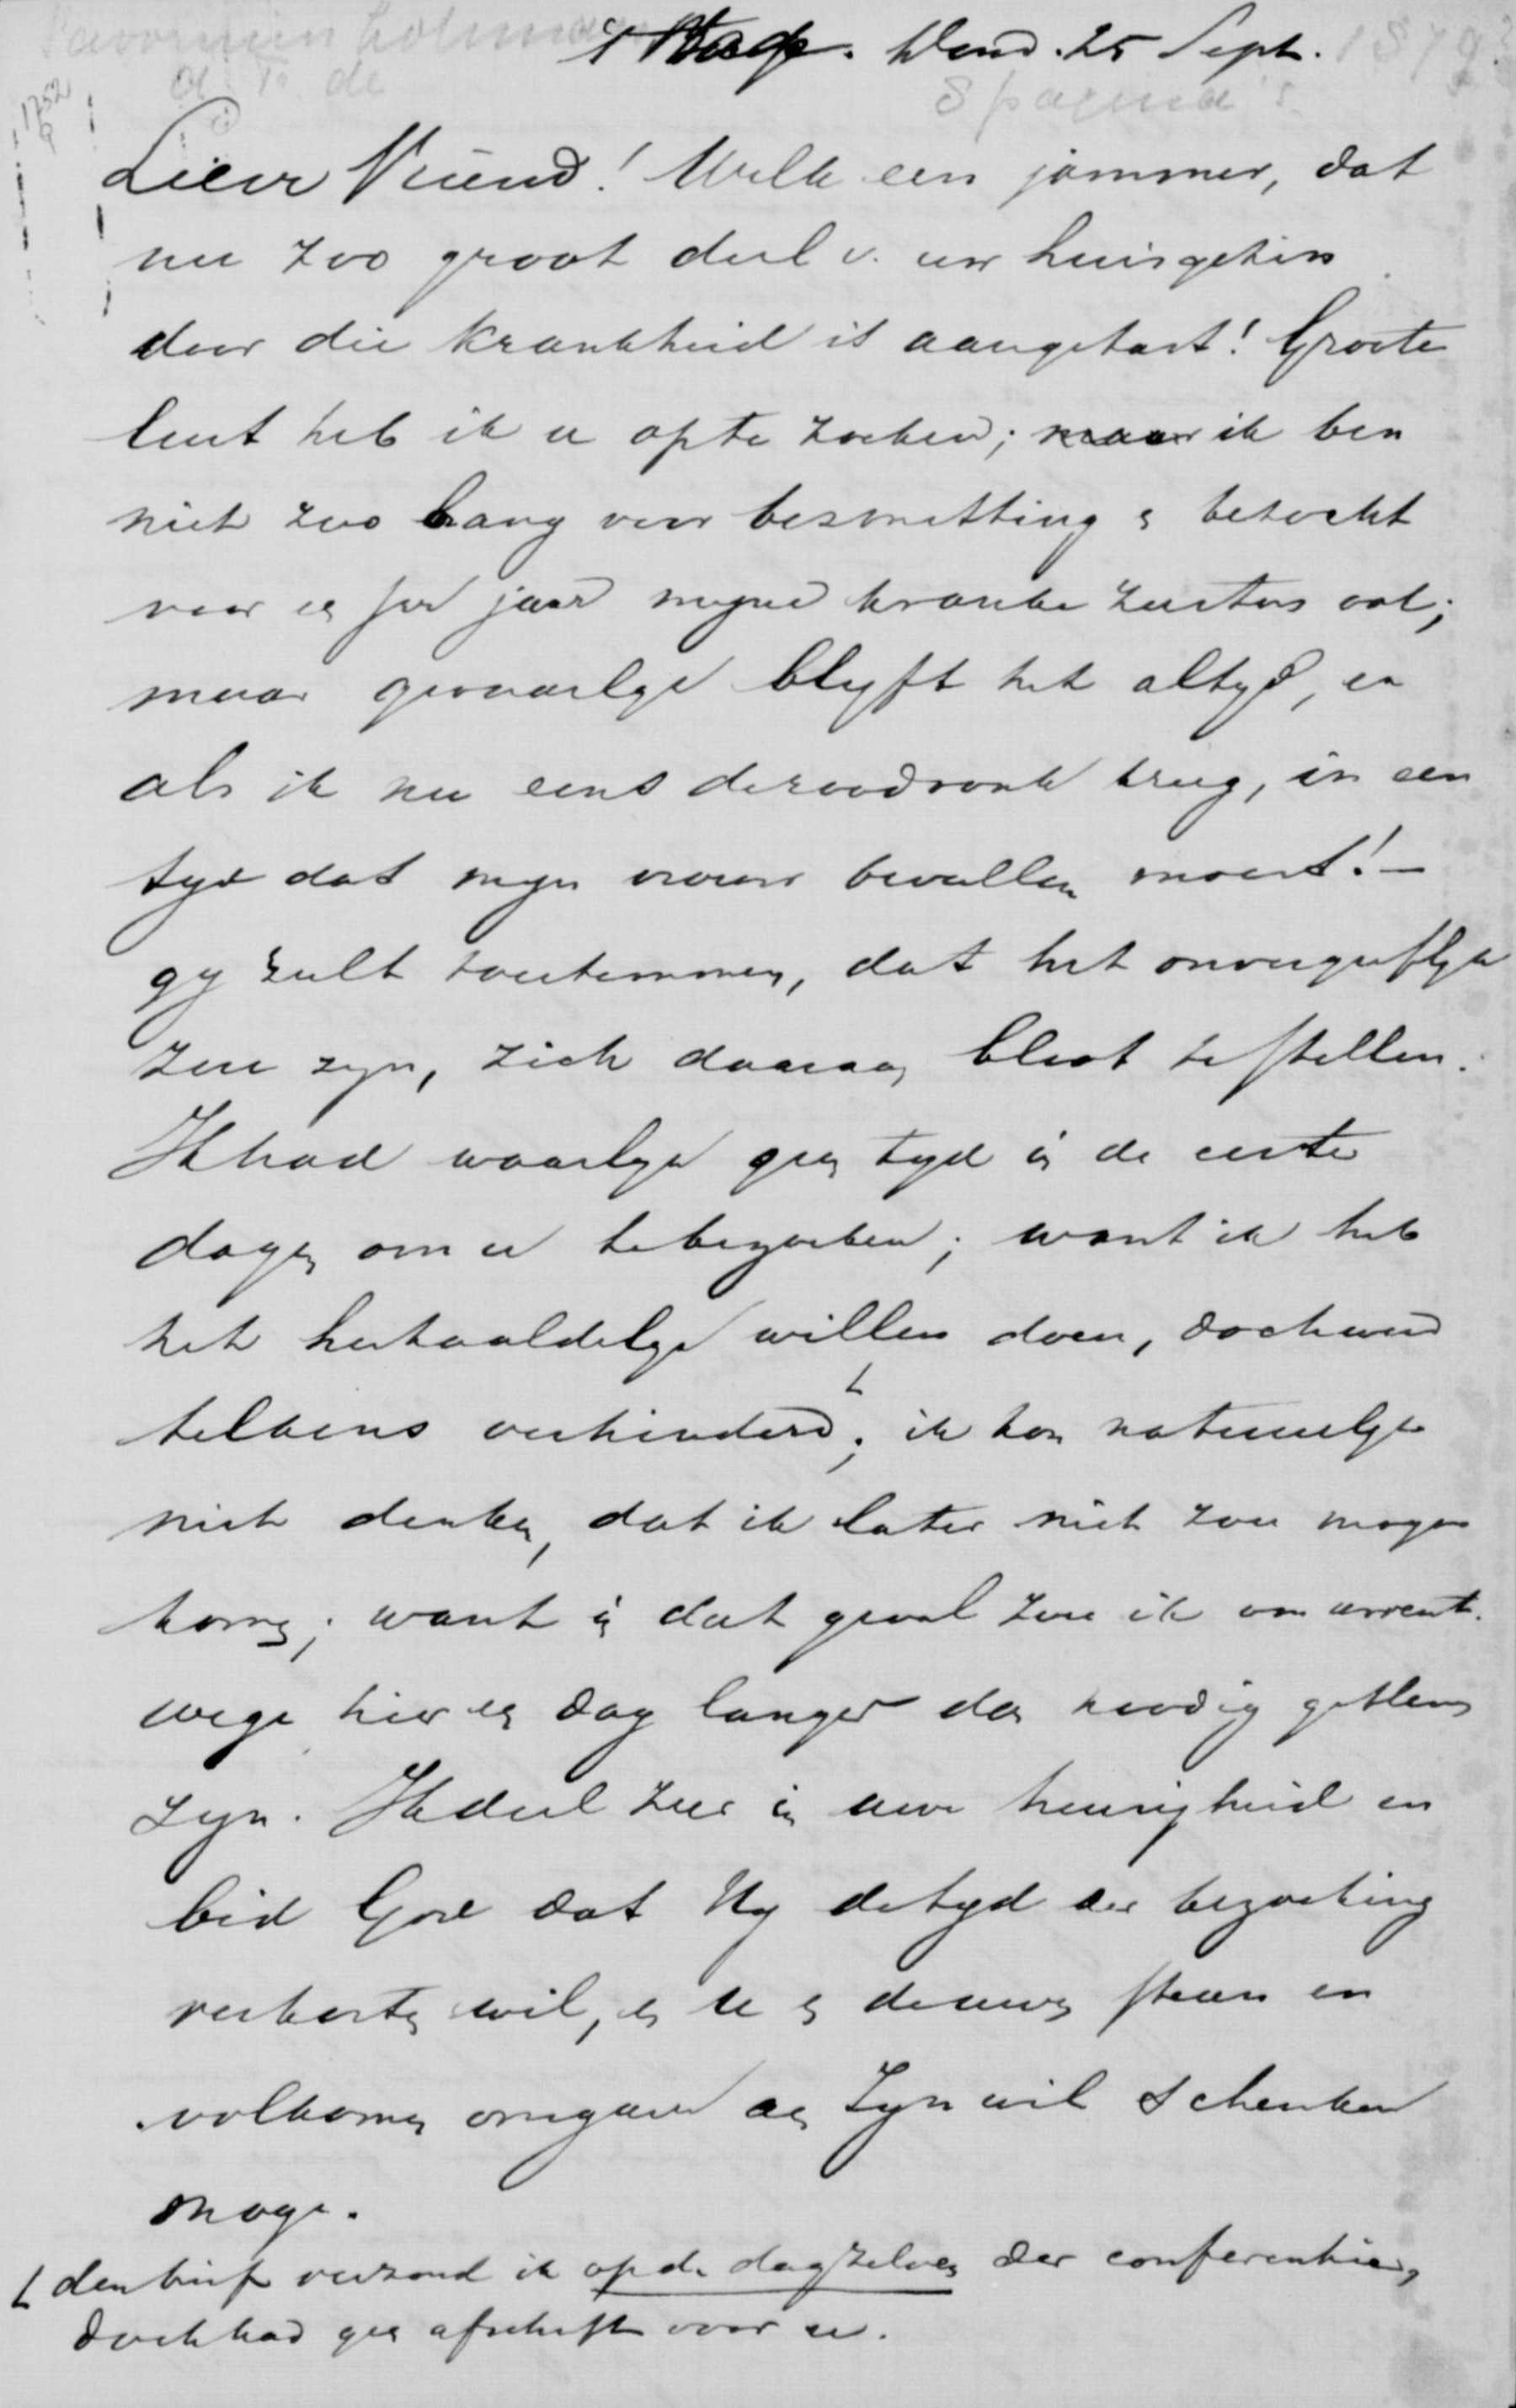 Savornin Lohman
d. T. de
1879
8 pagina's
1752
9
's Hage. Dond. 25 Sept.
Lieve Vriend! Welk een jammer, dat
nu zoo groot deel v. uw huisgezin
door die krankheid is aangetast! Groote
lust heb ik u op te zoeken; maar ik ben
niet zoo bang voor besmetting & bezocht
voor een paar jaar mijne kranke zusters ook;
maar gevaarlyk blyft het altyd, en
als ik nu eens de roodvonk kreeg, in een
tyd dat myn vrouw bevallen moest! —
gy zult toestemmen, dat het onvergeeflyk
zou zyn, zich daaraan bloot te stellen.
Ik had waarlyk geen tyd in de eerste
dagen om u te bezoeken; want ik heb
het herhaaldelyk willen doen, doch werd
telkens verhinderd; ik kon natuurlyk
niet denken, dat ik later niet zou mogen
komen; want in dat geval zou ik om uwent-
wege hier een dag langer dan noodig gebleven
zyn. Ik deel zeer in uwe treurigheid en
bid God dat Hy de tyd der bezoeking
verkorten wil, en U & de uwen steun en
volkomen overgave aan Zyn wil schenken
moge.
den brief verzond ik op den dag zelven der conferentien,
doch had geen afschrift voor u.